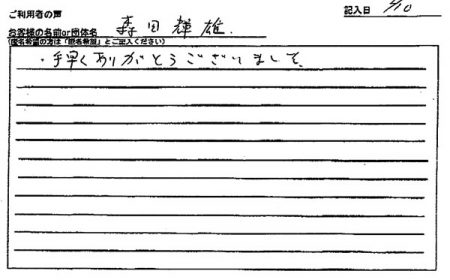 ご利用者の声
記入日 /10
お客様の名前or団体名 森田輝雄.
(匿名希望の方は「匿名希望」とご記入ください)
・手早くありがとうございまして。